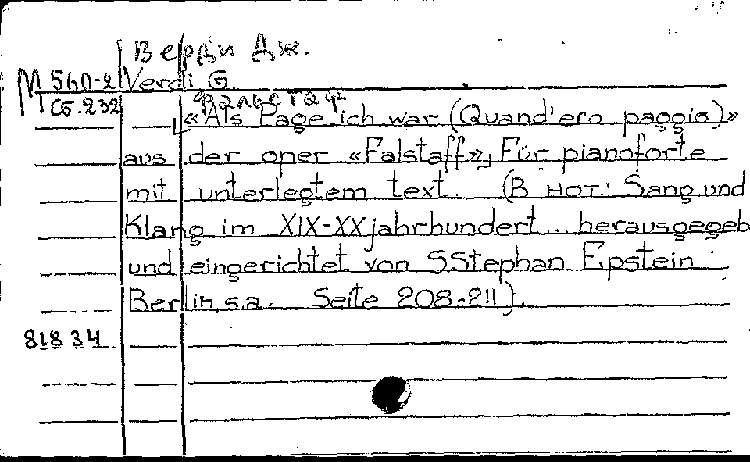 Верди Дж.
М 560-2 Verdi G.
Сб. 232 Фальстаф
«Als Page ich war (Quand'ero paggio)»
aus der oper «Falstaff», Für pianoforte
mit unterlegtem text. (В нот: Sang und
Klang im XIX-XX jahrhundert... herausgegeb
und eingerichtet von S.Stephan Epstein
Berlin, s.a. Seite 208-211).
81834